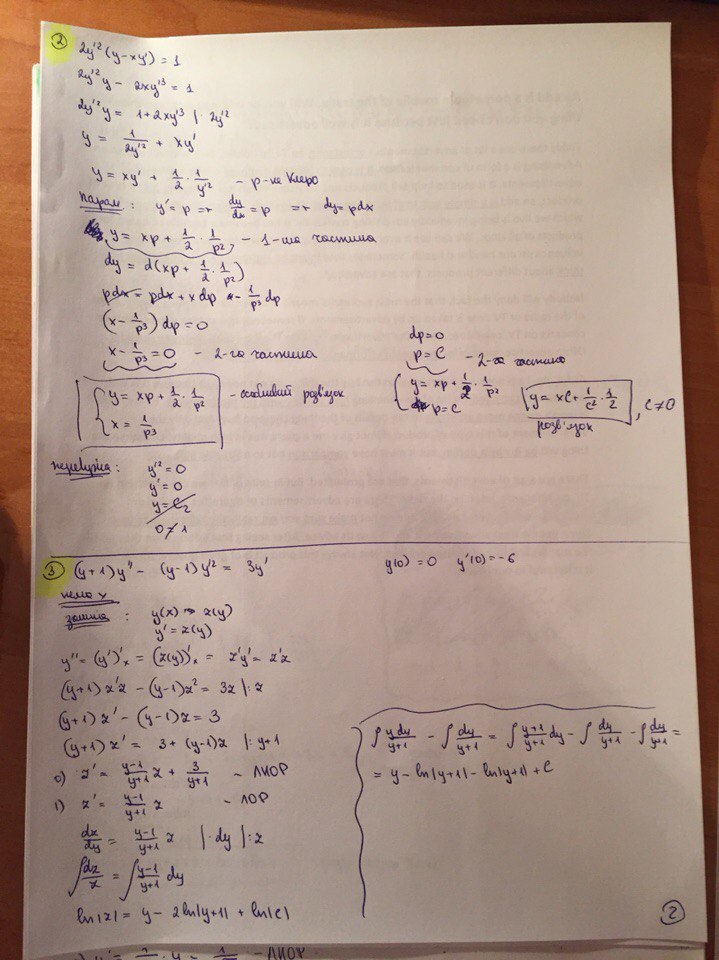 ②
2y'²(y-xy') = 1
2y'²y - 2xy'³ = 1
2y'²y = 1+2xy'³ | 2y'²
y = 1/(2y'²) + xy'
y = xy' + 1/2 · 1/y'² - р-не Клеро
парам: y' = p ⇒ dy/dx = p ⇒ dy = pdx
y = xp + 1/2 · 1/p² - 1-ша частина
dy = d(xp + 1/2 · 1/p²)
pdx = pdx + xdp - 1/p³ dp
(x - 1/p³) dp = 0
x - 1/p³ = 0 - 2-га частина
{ y = xp + 1/2 · 1/p²
x = 1/p³
- особливий розв'язок
dp = 0
p = C - 2-га частина
{ y = xp + 1/2 · 1/p²
p = C
y = xC + 1/C² · 1/2 , C ≠ 0
розв'язок
перевірка: y'² = 0
y' = 0
y = C₂
0 ≠ 1
③ (y+1)y'' - (y-1)y'² = 3y' y(0) = 0 y'(0) = -6
нема x
заміна: y(x) → z(y)
y' = z(y)
y'' = (y')'ₓ = (z(y))'ₓ = z'y' = z'z
(y+1)z'z - (y-1)z² = 3z |:z
(y+1)z' - (y-1)z = 3
(y+1)z' = 3 + (y-1)z |: y+1
0) z' = (y-1)/(y+1) z + 3/(y+1) - ЛНОР
1) z' = (y-1)/(y+1) z - ЛОР
dz/dy = (y-1)/(y+1) z | ·dy |:z
∫dz/z = ∫(y-1)/(y+1) dy
ln|z| = y - 2ln|y+1| + ln|c|
∫ydy/(y+1) - ∫dy/(y+1) = ∫(y+1)/(y+1) dy - ∫dy/(y+1) - ∫dy/(y+1) =
= y - ln|y+1| - ln|y+1| + C
②
- ЛНОР